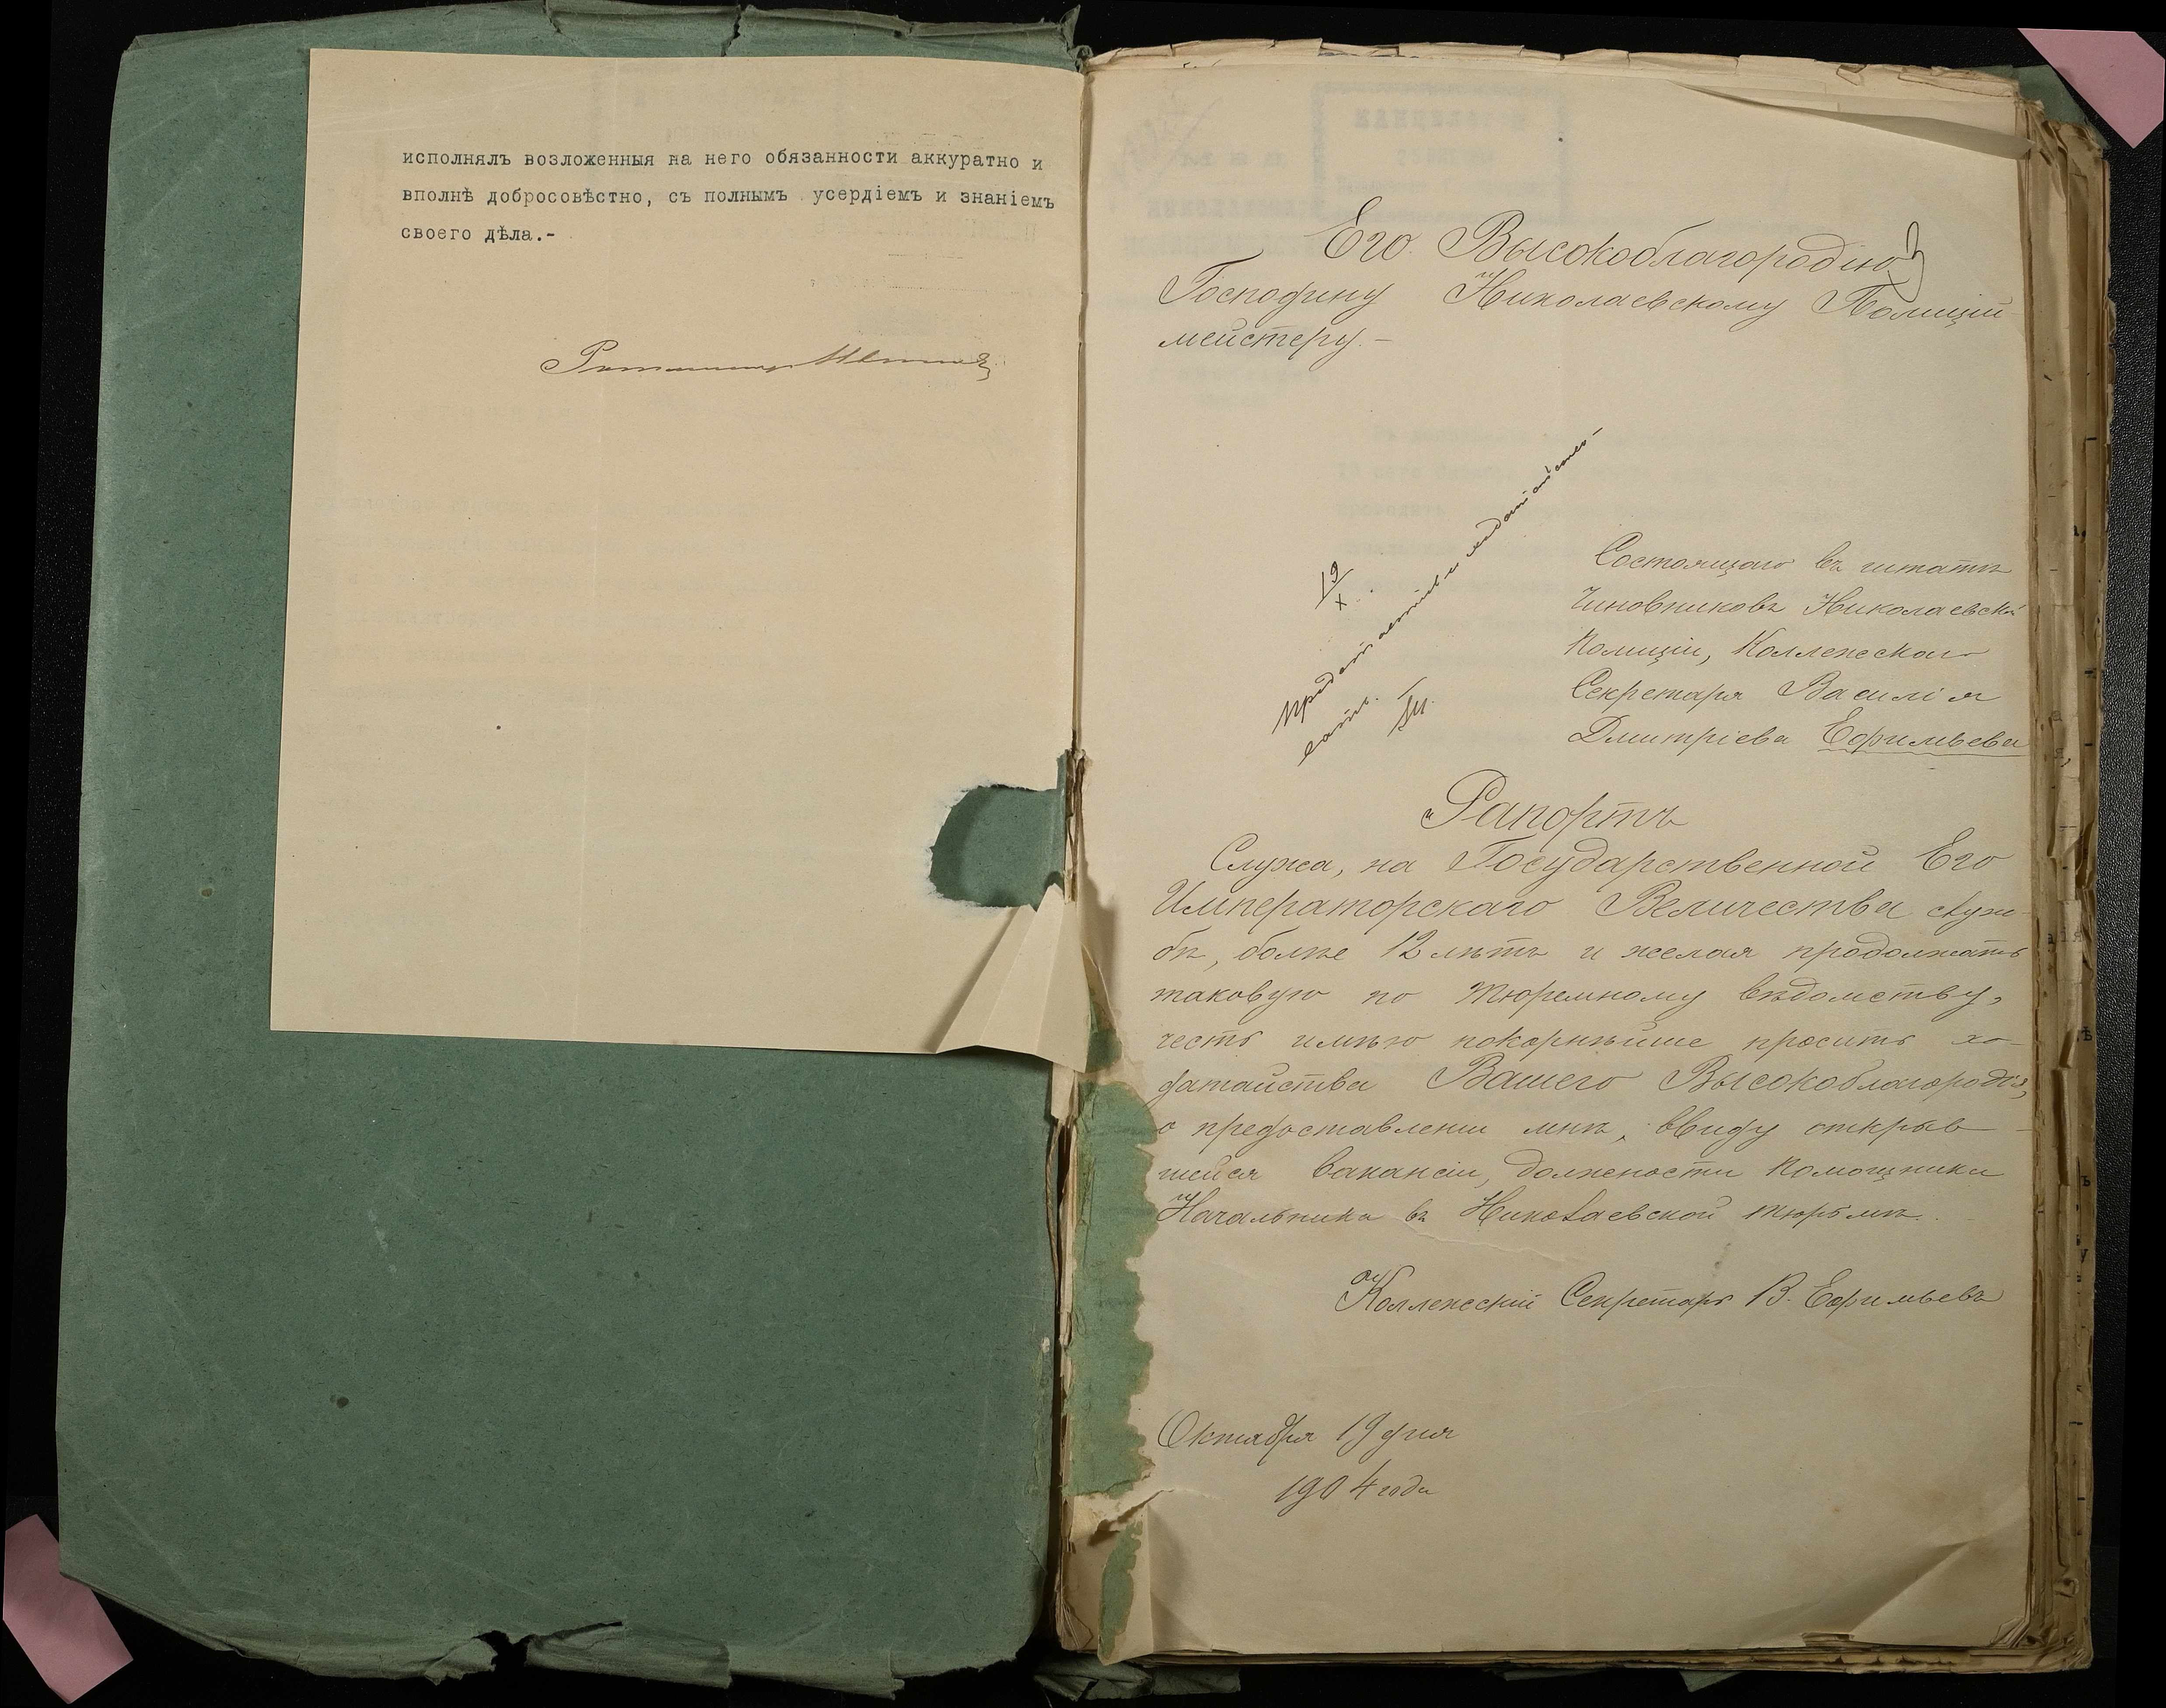 исполнялъ возложенныя на него обязанности аккуратно и
вполнѣ добросовѣстно, съ полнымъ усердіемъ и знаніемъ
своего дѣла.-
Ротмистръ
3
Его Высокоблагородію
Господину Николаевскому Полицій
мейстеру.-
19/X
Состоящаго въ штатѣ
Чиновниковъ Николаевской
Полиціи, Коллежскаго
Секретаря Василія
Дмитріева Ефимьева
Рапортъ
Служа, на Государственной Его
Императорскаго Величества служ-
бѣ, болѣе 12 лѣтъ и желая продолжать
таковую по тюремному вѣдомству,
честь имѣю покорнѣйше просить хо-
датайства Вашего Высокоблагородія,
о предоставленіи мнѣ, ввиду открыв-
шейся вакансіи, должности Помощника
Начальника въ Николаевской тюрьмѣ.
Коллежскій Секретарь В. Ефимьевъ
Октября 19 дня
1904 года